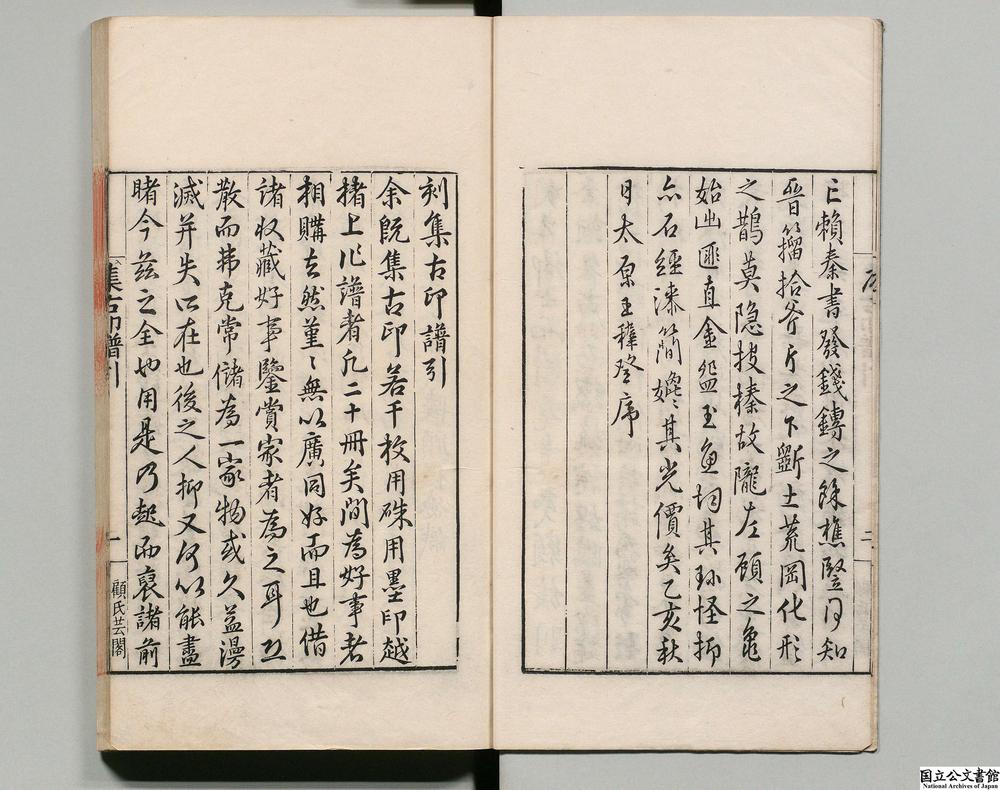 亡賴秦書發錢鏄之餘樵豎何知
晉籀拾斧斤之下斸土荒岡化形
之鵲莫隐披榛故隴左顧之龜
始出匪直金盌玉魚均其珎怪抑
亦石經漆簡媲其光價矣乙亥秋
日太原王穉登序
刻集古印譜引
余既集古印若干枚用硃用墨印越
楮上作譜者凡二十冊矣間為好事者
相購去然菫〻無以廣同好而且也借
諸收藏好事鑒賞家者為之耳
散而弗克常儲為一家物或久益漫
滅并失所在也後之人抑又何以能盡
睹今茲之全也用是乃起而裒諸前
集古印譜引
一
顧氏芸閣
国立公文書館
National Archives of Japan